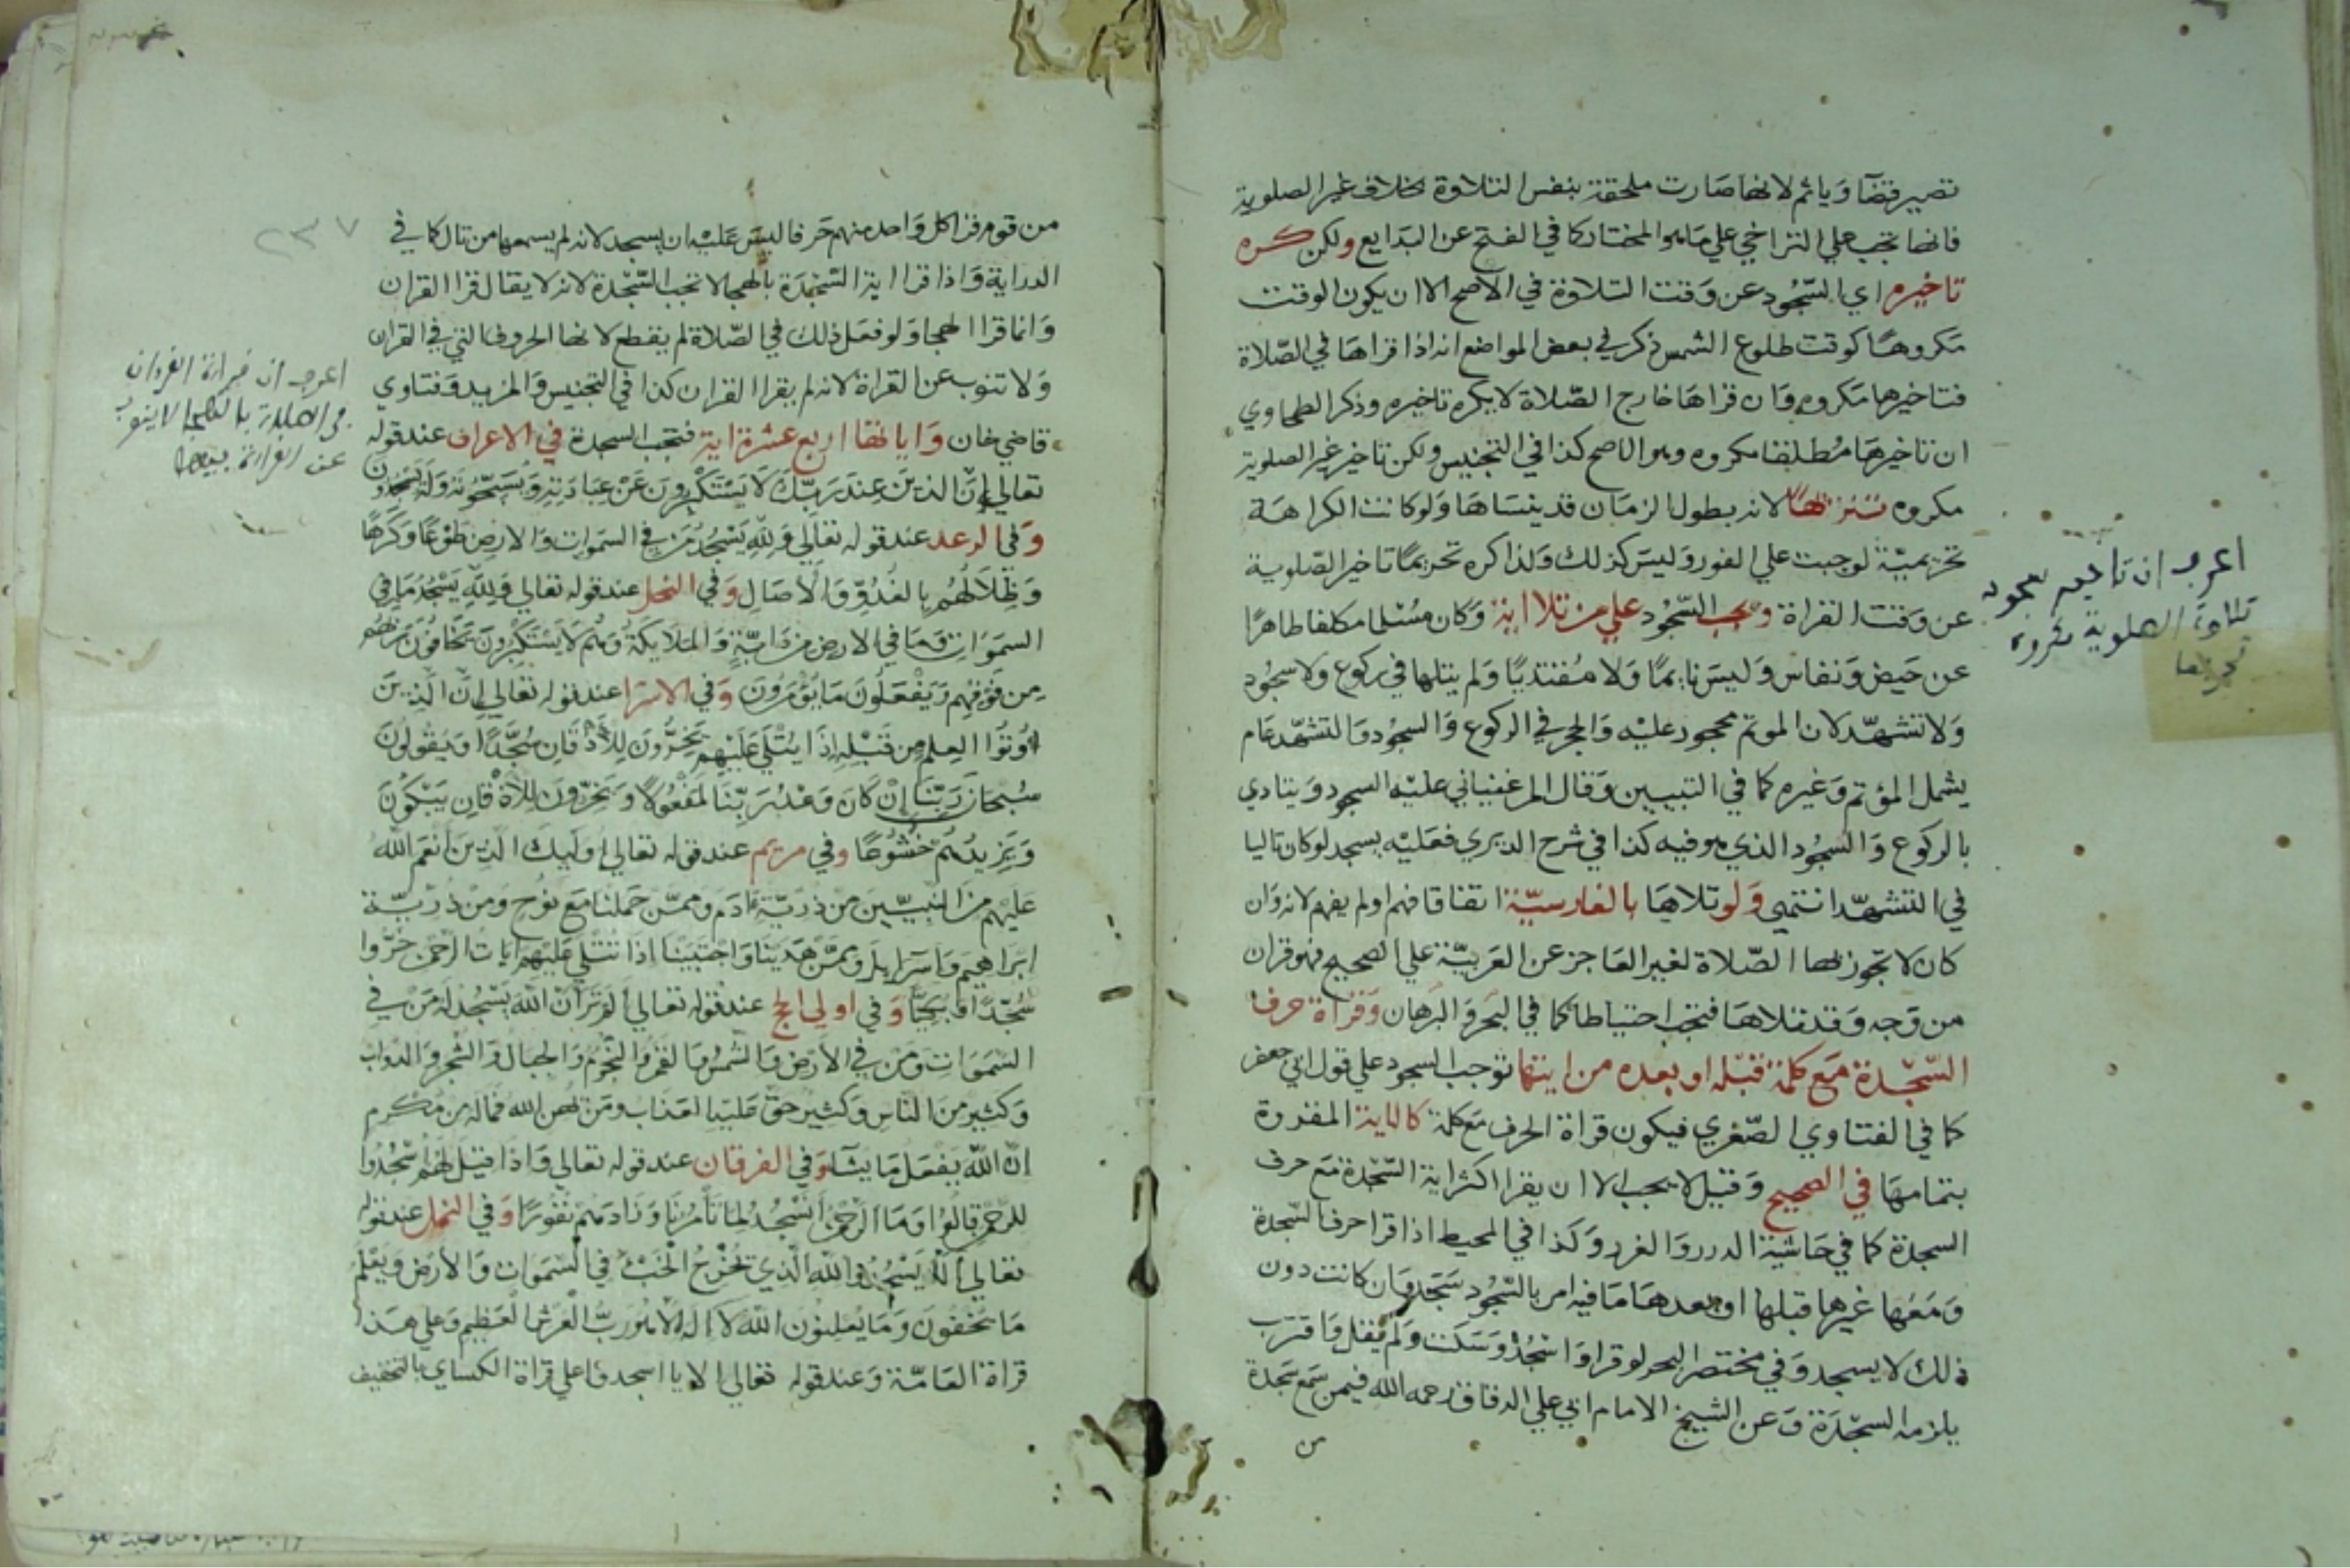 تصير قضآ وَيأثم لانها صَارت ملحقة بنفس التلاوة بخلاف غير الصلوية
فانها تجب علي التراخي علي مَا هو المختار كما في الفتح عن البدَايع ولكن كره
تاخيره اي السّجُود عن وَقت التلاوة في الاصح الا ان يكون الوقت
مَكروهًا كوقت طلوع الشمس ذكر في بعض المواضع انه اذا قراهَا في الصّلاة
فتاخيرها مَكروه وَان قراهَا خارج الصّلاة لا يكره تاخيره وذكر الطحاوي
ان تاخيرهَا مُطلقا مكروه وهو الاصح كذا في التجنيس ولكن تاخير غير الصلوية
مكروه تنزيهًا لانه بطول الزمَان قد ينسَاهَا وَلو كانت الكراهَة
تحريميّة لوجبت علي الفور وَليسَ كذلك وَلذا كره تحريمًا تاخير الصّلوية
عن وَقت القراة ويجب السّجُود علي من تلا اية وَكان مُسْلما مكلفا طاهرًا
عن حَيض وَنفاس وَليسَ نايمًا وَلا مُقتديًا وَلم يتلها في ركوع ولا سجُود
وَلا تشهّد لان الموتم محجور عليْه وَالحجر في الركوع وَالسجُود وَالتشهّد عَام
يشمل المؤتم وَغيره كما في التبيين وَقال المرغيناني عليْه السجود وَيتادي
بالركوع وَالسجُود الذي هو فيه كذا في شرح الديري فعَليْه يسجد لو كان تاليا
في التشهّد انتهي وَلو تلاهَا بالفارسيّة اتفاقا فهم او لم يفهم لانه وَان
كان لا تجوز بها الصّلاة لغير العَاجز عن العَربيّة علي الصحيح فهو قران
من وَجه وَقد تلاهَا فتجب احتياطا كما في البَحر وَالبُرهان وَقراة حرف
السّجْدة مَع كلمة قبْله او بعده من ايتها توجب السجود علي قول ابي جعفر
كما في الفتاوي الصّغري فيكون قراة الحرف مَع كلمة كالاية المقدرة
بتمامهَا في الصحيح وَقيل لا يجب الا ان يقرا اكثر اية السّجْدة مَع حرف
السجدة كما في حَاشية الدرر وَالغرر وَكذا في المحيط اذا قرا حرف السّجدة
وَمَعَها غيرها قبلها او بعدهَا مَا فيه امر بالسّجُود سَجَد وَان كانت دون
ذلك لا يسجد وَفي مختصر البحر لو قرا وَاسْجُدْ وَسَكت وَلم يقل وَاقترب
يلزمه السجْدَة وَعن الشيخ الامام ابي علي الدقاق رحمه الله فيمن سَمع سَجدة
من
اعرف ان تاخير سجود
تلاوة الصلوية مكروه
تحريما
٢٣٧
من قوم قرا كل وَاحد منهم حَرفا ليسَ عَليْه ان يسجد لانه لم يسمعها من تال كما في
الدراية وَاذا قرا اية السّجْدَة بالهجا لا تجب السّجْدة لانه لا يقال قرا القران
وَانما قرا الهجا وَلو فعَل ذلك في الصّلاة لم يقطع لانها الحروف التي في القران
وَلا تنوب عن القراة لانه لم يقرا القران كذا في التجنيس وَالمزيد وَفتاوي
قاضي خان وَاياتها اربع عشرة اية فتجب السجدة في الاعراف عند قوله
تعالي اِنَّ الذِينَ عِندَ رَبِّكَ لَا يَسْتَكْبِرُونَ عَنْ عِبَادَتِهِ وَيُسَبِّحُونَهُ وَلَهُ يَسْجُدُونَ
وَفي الرعد عند قوله تعَالي وَلِلّهِ يَسْجُدُ مَن في السَموَاتِ وَالارضِ طَوْعًا وَكَرْهًا
وَظِلَالُهُم بِالغُدُوِّ وَالْاصَالِ وَفي النحل عند قوله تعالي وَلِلّهِ يَسْجُدُ مَا في
السمَوَاتِ وَمَا في الارضِ من دَابّةٍ وَالمَلَايِكَةُ وَهُم لَا يَسْتَكْبِرُونَ يَخَافُونَ رَبّهُم
مِن فَوْقِهِم وَيَفْعَلُونَ مَا يُؤْمَرُونَ وَفي الاسرَا عند قوله تعَالي اِنَّ الَّذِينَ
اُوتُوا العِلمَ مِن قَبْلِهِ اِذَا يُتْلَى عَلَيْهِم يَخِرُّونَ لِلْاَذْقَانِ سُجَّدًا وَيَقُولُونَ
سُبْحَانَ رَبِّنَا اِنْ كَانَ وَعْدُ رَبِّنَا لَمَفْعُولًا وَيَخِرّونَ لِلْاَذْقَانِ يَبْكُونَ
وَيَزِيدُهُمْ خُشُوعًا وفي مريم عند قوله تعالي اُولَيِكَ الَّذِينَ اَنْعَمَ اللّهُ
عَلَيْهِم مِنَ النَبِيّينَ مِن ذُرِّيَّةِ ءَادَمَ وَممَّن حَمَلنَا مَعَ نُوحٍ وَمِنْ ذُرِّيَّةِ
اِبرَاهِيمَ وَاسْرَايِلَ وَممَّن هَدَينَا وَاجْتَبَيْنَا اِذَا تُتْلَي عَلَيْهِم ايَاتُ الرَّحْمَنِ خَرُّوا
سُجَّدًا وَبُكِيًّا وَفي اولي الحج عند قوله تعَالي اَلَمْ تَرَ اَنَّ اللّهَ يَسْجُدُ لَهُ مَنْ في
السَّمَوَاتِ وَمَنْ في الْاَرْضِ وَالشَّمْسُ وَالقَمَرُ وَالنُّجُومُ وَالجِبَالُ وَالشَّجَرُ وَالدّوَابُ
وَكَثِيرٌ مِنَ النَّاسِ وَكَثِيرٌ حَقَّ عَلَيْهِ العَذَابُ وَمَنْ يُهِنِ اللّه فَمَا لَهُ مِن مُكْرِمٍ
اِنَّ اللّهَ يَفْعَل مَا يَشَآء وَفي الفرقان عند قوله تعالي وَاِذَا قِيلَ لَهُمُ اسْجُدُوا
لِلرَّحْمَنِ قَالُوا وَمَا الرَّحْمَنُ اَنَسْجُدُ لِمَا تَأْمُرُنَا وَزَادَهُمْ نُفُورًا وَفي النمل عند قوله
تعَالي اَلَّا يَسْجُدُوا لِلّهِ الَّذِي يُخْرِجُ الْخَبْءَ في السّمَوَاتِ وَالْاَرْضِ وَيَعْلَمُ
مَا تُخْفُونَ وَمَا يُعْلِنُونَ اللّهُ لَا اِلَهَ اِلَّا هُوَ رَبُّ الْعَرْشِ الْعَظِيمِ وَعلي هَذا
قراة العَامّة وَعند قوله تعَالي الا يا اسجدوا علي قراة الكساي بالتخفيف
اعرف ان قراءة القران
في الصلاة بالهجا لا ينوب
عن القراءة